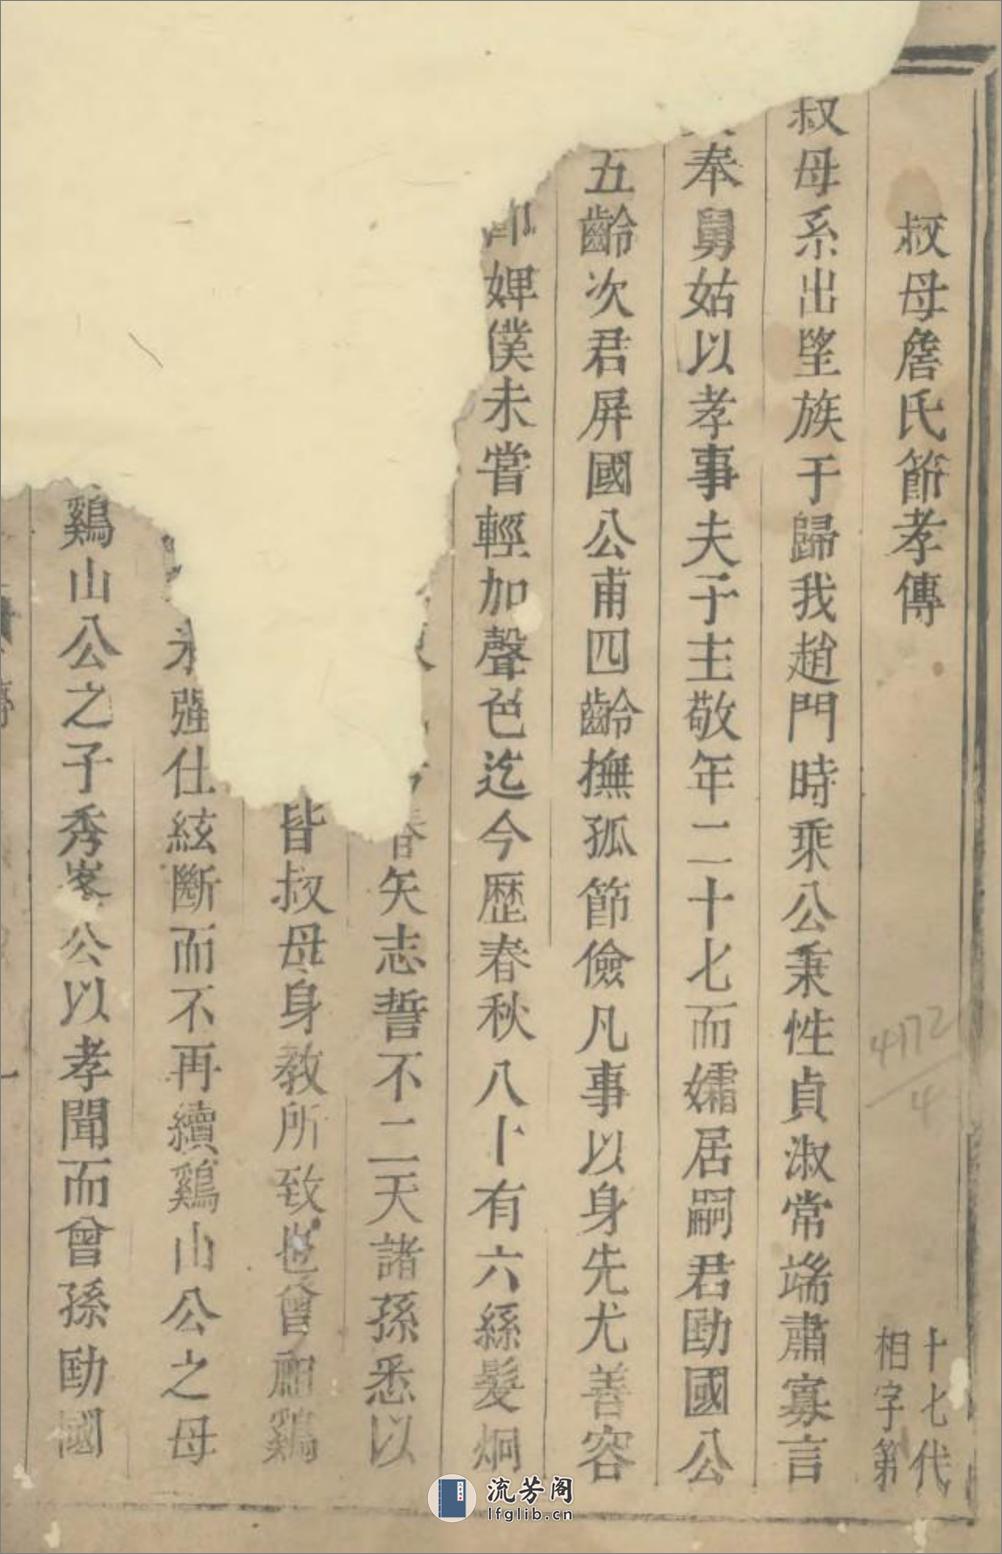 叔母詹氏節孝傳
十七代
相字第
叔母系出望族于歸我趙門時乘公秉性貞淑常端肅寡言
奉舅姑以孝事夫子主敬年二十七而孀居嗣君勖國公
五齡次君屏國公甫四齡撫孤節儉凡事以身先尤善容
婢僕未嘗輕加聲色迄今歷春秋八十有六絲髮炯
春矢志誓不二天諸孫悉以
皆叔母身教所致也曾祖鷄
强仕絃斷而不再續鷄山公之母
鷄山公之子秀峯公以孝聞而曾孫勖國
4172
4
流芳阁
lfglib.cn